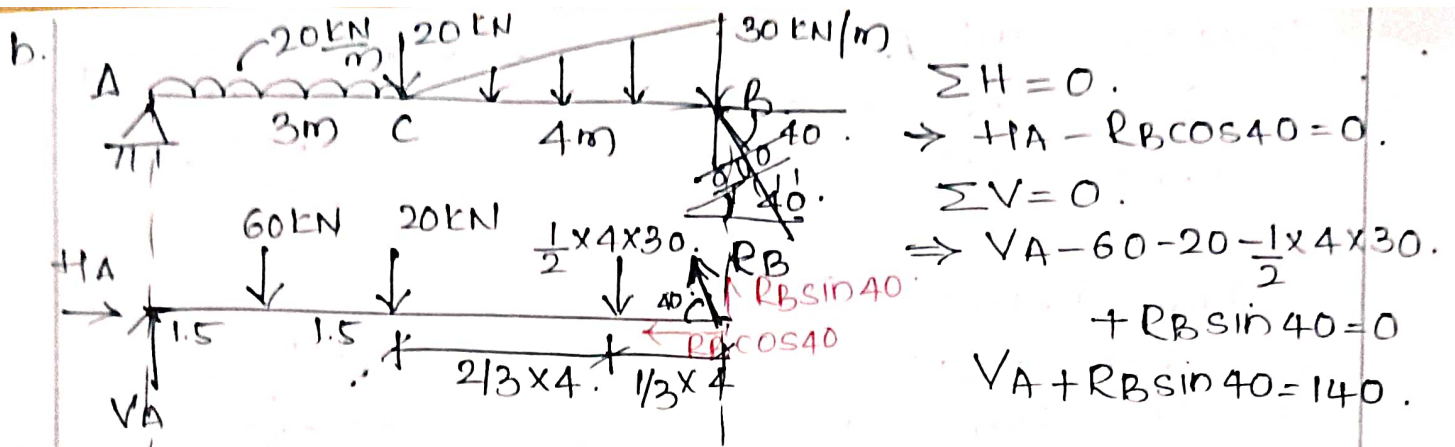 b.
20 KN/m 20 KN 30 KN/m
A B
3m C 4m 40.
40.
60KN 20KN 1/2 ×4×30. RB
HA 40 RBsin40
1.5 1.5 RBcos40
2/3×4. 1/3×4
VA
ΣH=0.
→ HA - RBcos40=0.
ΣV=0.
⇒ VA-60-20-1/2×4×30.
+RBsin40=0
VA+RBsin40=140.